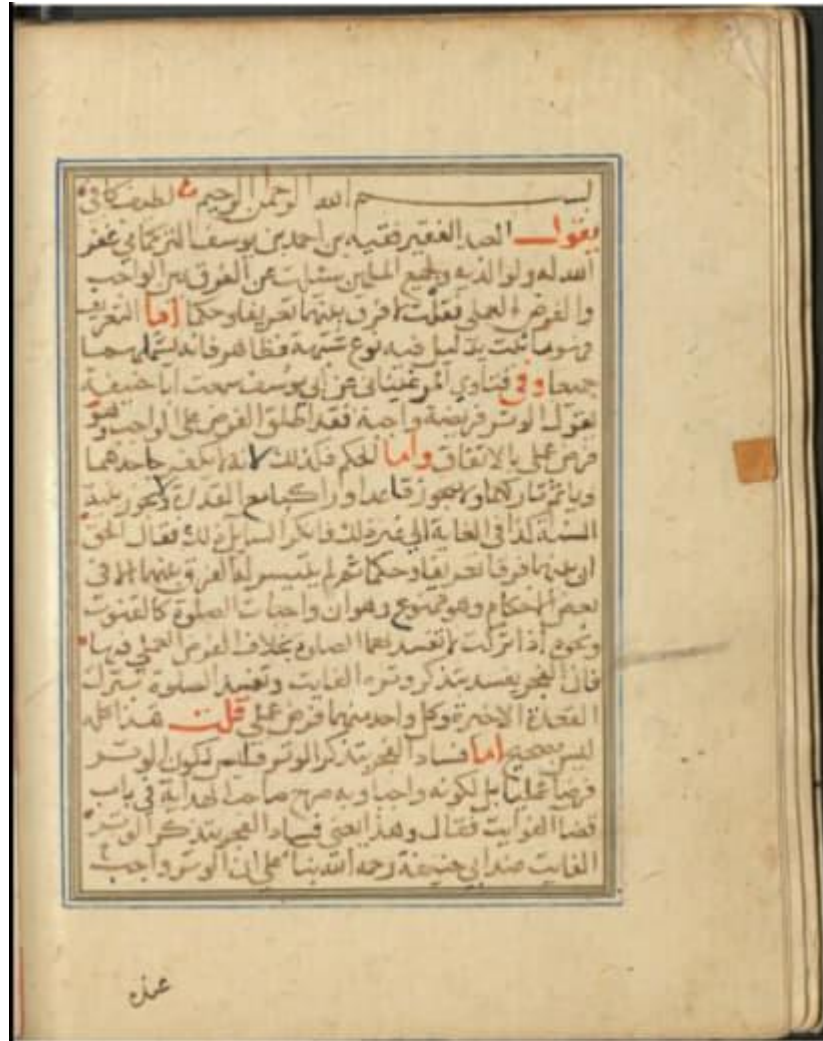 بسم الله الرحمن الرحيم
يقول العبد الفقير فقيه بن احمد بن يوسف التركماني غفر
الله له ولوالديه ولجميع المسلمين سئلت عن الفرق بين الواجب
والفرض العملي فقلت لا فرق بينهما تعريفا وحكما اما التعريف
فهو ما ثبت بدليل فيه نوع شبهة فظاهر فانه يشملهما
جميعا وفي فتاوي المرغيناني عن ابي يوسف سمعت ابا حنيفة
يقول الوتر فريضة واجبة فقد اطلق الفرض على الواجب وهو
فرض عملي بالاتفاق واما الحكم فكذلك لانه لا يكفر جاحدهما
وياثم تاركهما ولا يجوز قاعدا وراكبا مع القدرة ولا يجوز بنية
السنة كذا في الغاية الي غير ذلك فانكر السايل ذلك فقال الحق
ان بينهما فرقا تعريفا وحكما ثم لم يتيسر له الفرق بينهما الا في
بعض الاحكام وهو ممنوع وهو ان واجبات الصلوة كالقنوت
ونحوه اذا تركت لا تفسد بها الصلوة بخلاف الفرض العملي فيها
فان الفجر يفسد بتذكر وتره الفايت وتفسد الصلوة بترك
القعدة الاخيرة وكل واحد منهما فرض عملي قلت هذا كله
ليس بصحيح اما فساد الفجر بتذكر الوتر فليس لكون الوتر
فرضا عمليا بل لكونه واجبا وبه صرح صاحب الهداية في باب
قضا الفوايت فقال وهذا يعني فساد الفجر بتذكر الوتر
الفايت عند ابي حنيفة رحمه الله بناء على ان الوتر واجب
عنده